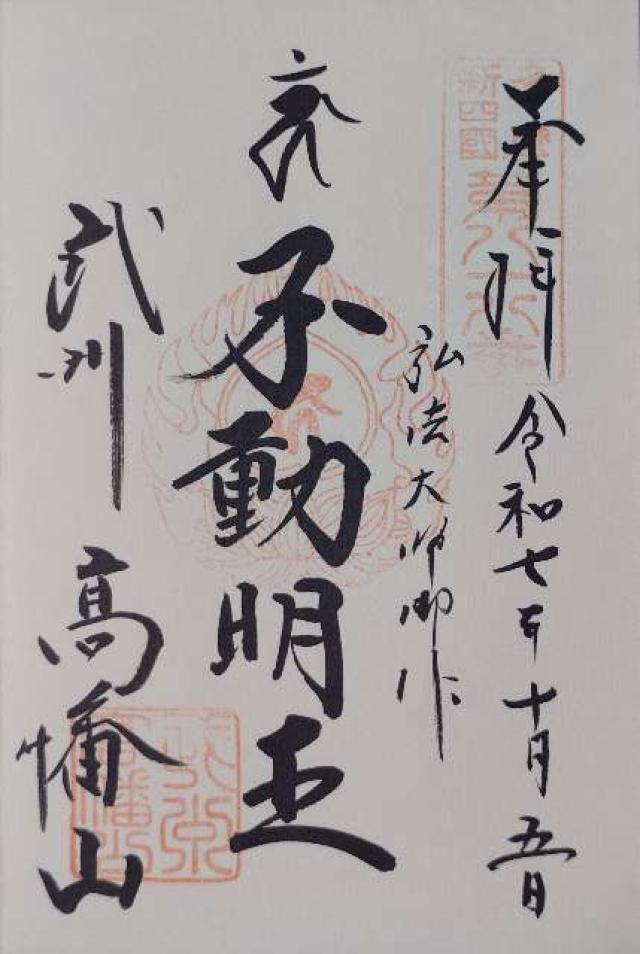 奉拝
令和七年十月五日
弘法大師御作
不動明王
武州
高幡山
新四國